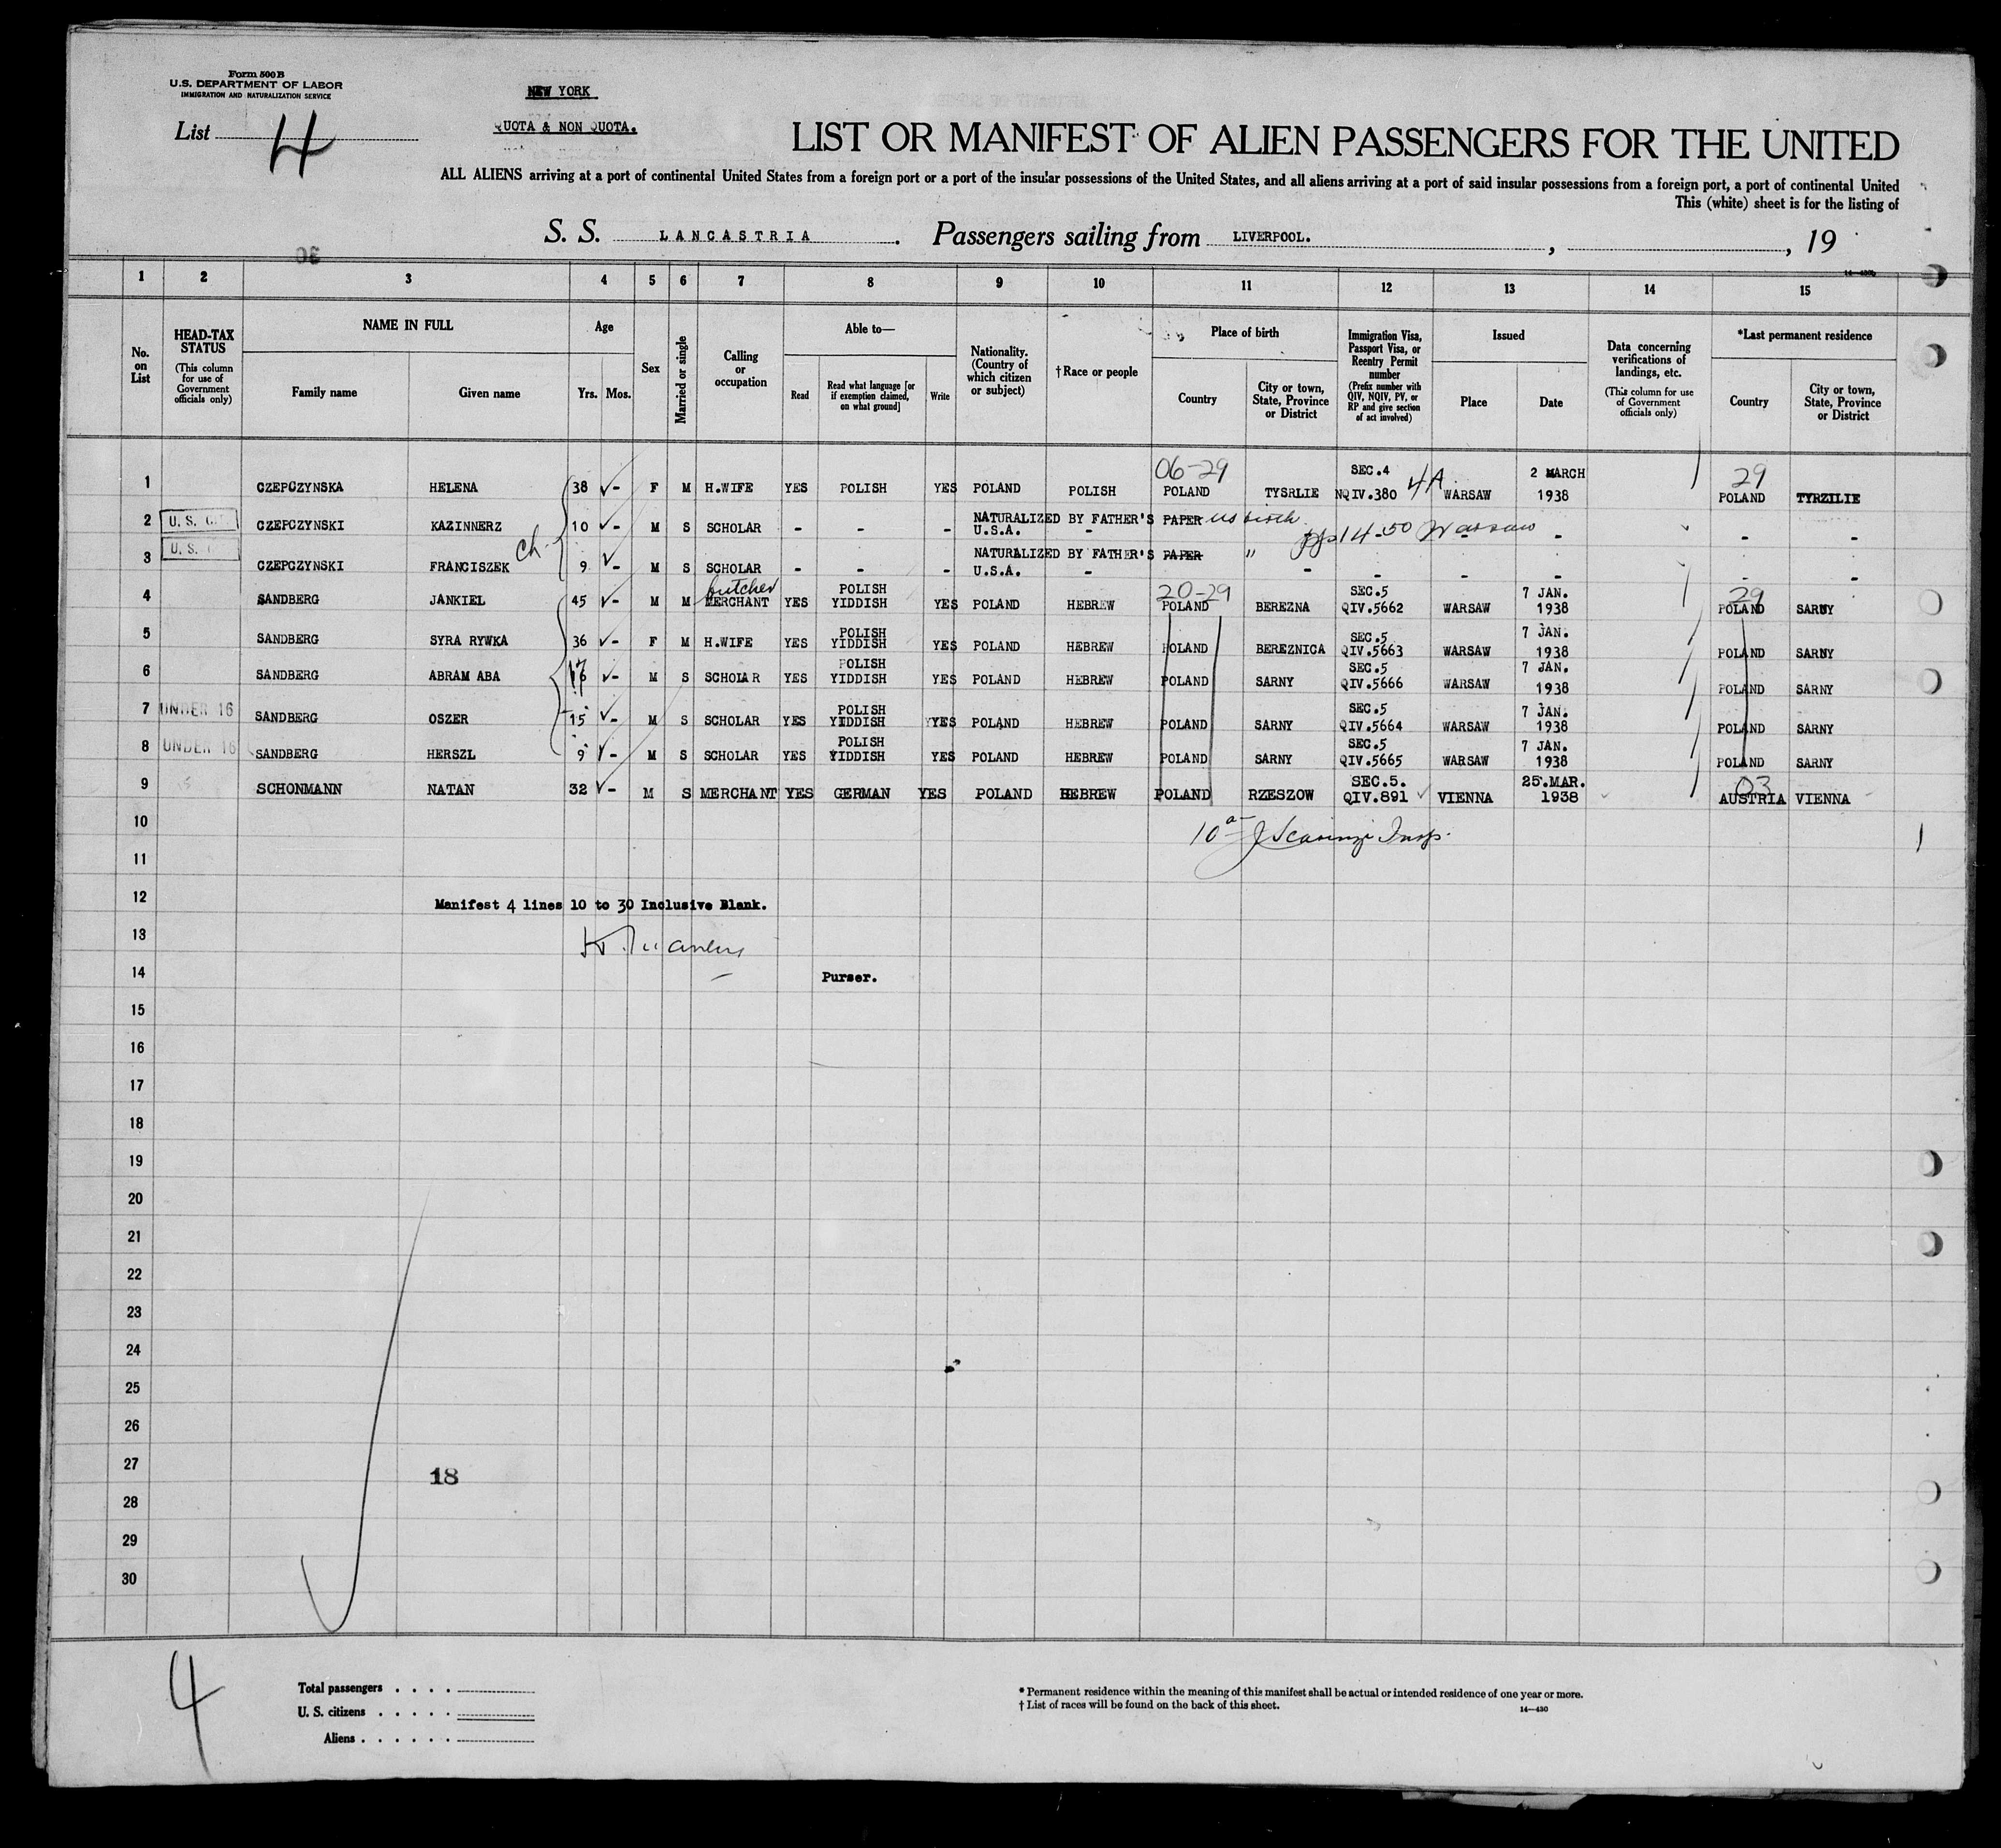 Form 500B
U.S. DEPARTMENT OF LABOR
IMMIGRATION AND NATURALIZATION SERVICE
List 4
NEW YORK
QUOTA & NON QUOTA.
LIST OR MANIFEST OF ALIEN PASSENGERS FOR THE UNITED
ALL ALIENS arriving at a port of continental United States from a foreign port or a port of the insular possessions of the United States, and all aliens arriving at a port of said insular possessions from a foreign port, a port of continental United
This (white) sheet is for the listing of
S. S. LANCASTRIA. Passengers sailing from LIVERPOOL. , , 19
1 2 3 4 5 6 7 8 9 10 11 12 13 14 15
No. on List
HEAD-TAX STATUS
(This column for use of Government officials only)
NAME IN FULL
Family name
Given name
Age
Yrs. Mos.
Sex
Married or single
Calling or occupation
Able to—
Read
Read what language [or if exemption claimed, on what ground]
Write
Nationality. (Country of which citizen or subject)
†Race or people
Place of birth
Country
City or town, State, Province or District
Immigration Visa, Passport Visa, or Reentry Permit number
(Prefix number with QIV, NQIV, PV, or RP and give section of act involved)
Issued
Place
Date
Data concerning verifications of landings, etc.
(This column for use of Government officials only)
*Last permanent residence
Country
City or town, State, Province or District
06-29 SEC.4 4A 2 MARCH 29
1 CZEPCZYNSKA HELENA 38 - F M H.WIFE YES POLISH YES POLAND POLISH POLAND TYSRLIE NQIV.380 WARSAW 1938 POLAND TYRZILIE
2 U.S. CIT CZEPCZYNSKI KAZINNERZ 10 - M S SCHOLAR - - - NATURALIZED BY FATHER'S PAPER us birth
U.S.A. - pp 14-50 Warsaw - - - -
3 U.S. CZEPCZYNSKI FRANCISZEK ch 9 - M S SCHOLAR - - - NATURALIZED BY FATHER'S PAPER "
U.S.A. - - - - - - -
butcher POLISH 20-29 SEC.5 7 JAN. 29
4 SANDBERG JANKIEL 45 - M M MERCHANT YES YIDDISH YES POLAND HEBREW POLAND BEREZNA QIV.5662 WARSAW 1938 POLAND SARNY
POLISH SEC.5 7 JAN.
5 SANDBERG SYRA RYWKA 36 - F M H.WIFE YES YIDDISH YES POLAND HEBREW POLAND BEREZNICA QIV.5663 WARSAW 1938 POLAND SARNY
POLISH SEC.5 7 JAN.
6 SANDBERG ABRAM ABA - M S SCHOLAR YES YIDDISH YES POLAND HEBREW POLAND SARNY QIV.5666 WARSAW 1938 POLAND SARNY
POLISH SEC.5 7 JAN.
7 UNDER 16 SANDBERG OSZER 15 - M S SCHOLAR YES YIDDISH YYES POLAND HEBREW POLAND SARNY QIV.5664 WARSAW 1938 POLAND SARNY
POLISH SEC.5 7 JAN.
8 UNDER 16 SANDBERG HERSZL 9 - M S SCHOLAR YES YIDDISH YES POLAND HEBREW POLAND SARNY QIV.5665 WARSAW 1938 POLAND SARNY
SEC.5. 25.MAR. 03
9 SCHONMANN NATAN 32 - M S MERCHANT YES GERMAN YES POLAND HEBREW POLAND RZESZOW QIV.891 VIENNA 1938 AUSTRIA VIENNA
10 10a Insp.
11
12 Manifest 4 lines 10 to 30 Inclusive Blank.
13
14 Purser.
15
16
17
18
19
20
21
22
23
24
25
26
27 18
28
29
30
4
Total passengers . . . .
U. S. citizens . . . . .
Aliens . . . . . .
* Permanent residence within the meaning of this manifest shall be actual or intended residence of one year or more.
† List of races will be found on the back of this sheet.
14—430